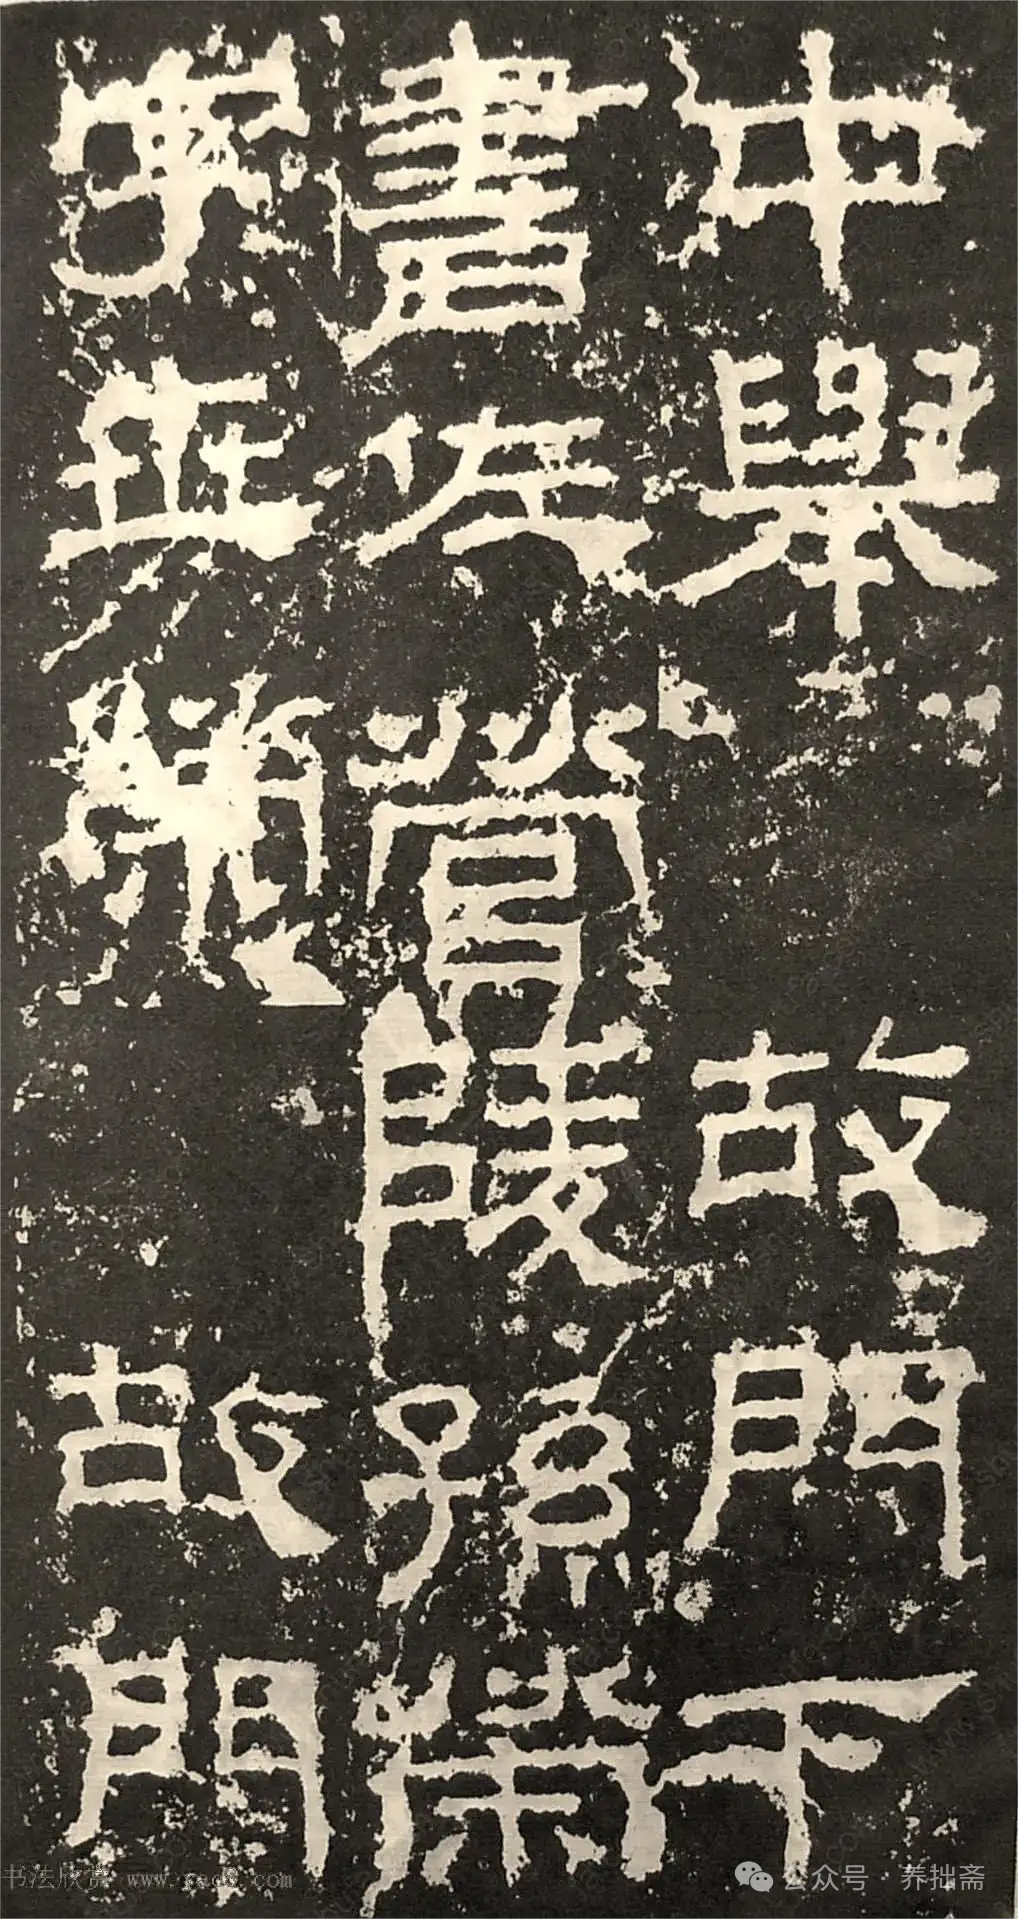 中舉故門下
書佐營陵孫榮
字世榮故門
书法欣赏 www.yac8.com
公众号·养拙斋